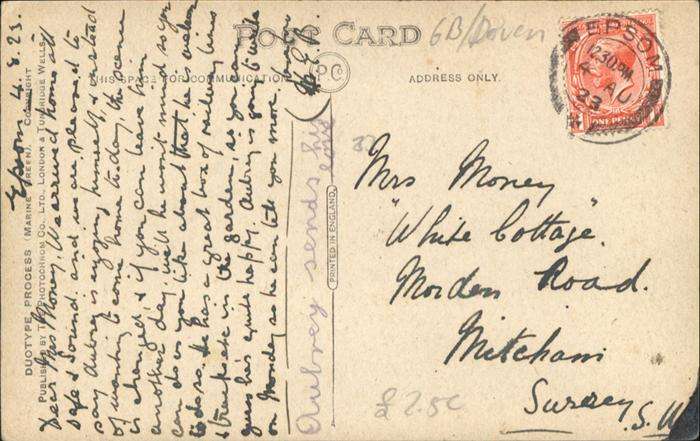 POST CARD
GB/Devon
THIS SPACE FOR COMMUNICATION
ADDRESS ONLY.
EPSOM
12.30 PM
4 AU
23
ONE PENNY
Epsom 4.8.23.
Dear Mrs Money, We arrived home all
safe & sound and we are pleased to
say Aubrey is enjoying himself & instead
of wanting to come home today, the scene
is changed & if you can leave him
another day, well he won't mind so you
can do as you like about that he is welcome
to do so. He has a great box of railway lines
& trucks etc in the garden, so you can
guess he's quite happy. Aubrey is going to write
on Monday so he can tell you more, from
Aubrey sends his
love
Mrs Money
"White Cottage".
Morden Road.
Mitcham
Surrey
S.W
£2.50
DUOTYPE PROCESS (MARINE GREEN). COPYRIGHT
PUBLISHED BY THE PHOTOCHROM CO., LTD., LONDON & TUNBRIDGE WELLS.
PRINTED IN ENGLAND.